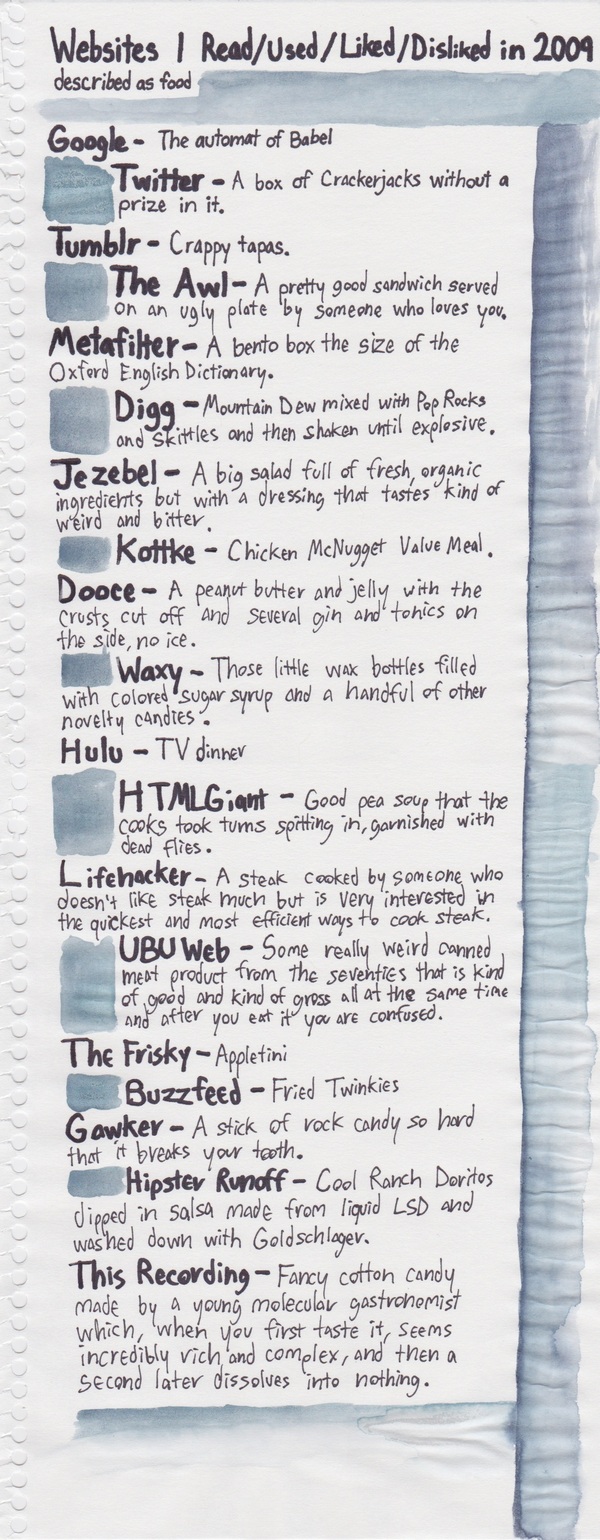 Websites I Read/Used/Liked/Disliked in 2009
described as food
Google - The automat of Babel
Twitter - A box of Crackerjacks without a
prize in it.
Tumblr - Crappy tapas.
The Awl - A pretty good sandwich served
on an ugly plate by someone who loves you.
Metafilter - A bento box the size of the
Oxford English Dictionary.
Digg - Mountain Dew mixed with Pop Rocks
and Skittles and then shaken until explosive.
Jezebel - A big salad full of fresh, organic
ingredients but with a dressing that tastes kind of
weird and bitter.
Kottke - Chicken McNugget Value Meal.
Dooce - A peanut butter and jelly with the
crusts cut off and several gin and tonics on
the side, no ice.
Waxy - Those little wax bottles filled
with colored sugar syrup and a handful of other
novelty candies.
Hulu - TV dinner
HTMLGiant - Good pea soup that the
cooks took turns spitting in, garnished with
dead flies.
Lifehacker - A steak cooked by someone who
doesn't like steak much but is very interested in
the quickest and most efficient ways to cook steak.
UBU Web - Some really weird canned
meat product from the seventies that is kind
of good and kind of gross all at the same time
and after you eat it you are confused.
The Frisky - Appletini
Buzzfeed - Fried Twinkies
Gawker - A stick of rock candy so hard
that it breaks your tooth.
Hipster Runoff - Cool Ranch Doritos
dipped in salsa made from liquid LSD and
washed down with Goldschlager.
This Recording - Fancy cotton candy
made by a young molecular gastronomist
which, when you first taste it, seems
incredibly rich and complex, and then a
second later dissolves into nothing.